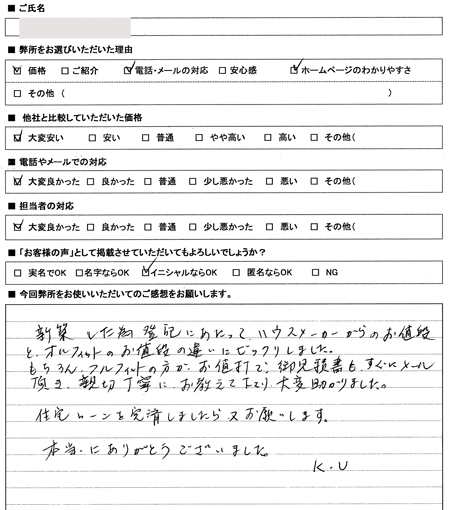 ■ ご氏名
■ 弊所をお選びいただいた理由
☑ 価格 □ ご紹介 ☑ 電話・メールの対応 □ 安心感 ☑ ホームページのわかりやすさ
□ その他 ( )
■ 他社と比較していただいた価格
☑ 大変安い □ 安い □ 普通 □ やや高い □ 高い □ その他(
■ 電話やメールでの対応
☑ 大変良かった □ 良かった □ 普通 □ 少し悪かった □ 悪い □ その他(
■ 担当者の対応
☑ 大変良かった □ 良かった □ 普通 □ 少し悪かった □ 悪い □ その他(
■「お客様の声」として掲載させていただいてもよろしいでしょうか?
□ 実名でOK □ 名字ならOK ☑ イニシャルならOK □ 匿名ならOK □ NG
■ 今回弊所をお使いいただいてのご感想をお願いします。
新築した為登記にあたって、ハウスメーカーからのお値段
と、オルフィットのお値段の違いにビックリしました。
もちろん、フルフィットの方が、お値打で、御見積書も、すぐにメール
頂き、親切丁寧に、お教えて下さり、大変助かりました。
住宅ローンを完済しましたら又お願いします。
本当にありがとうございました。
K.U